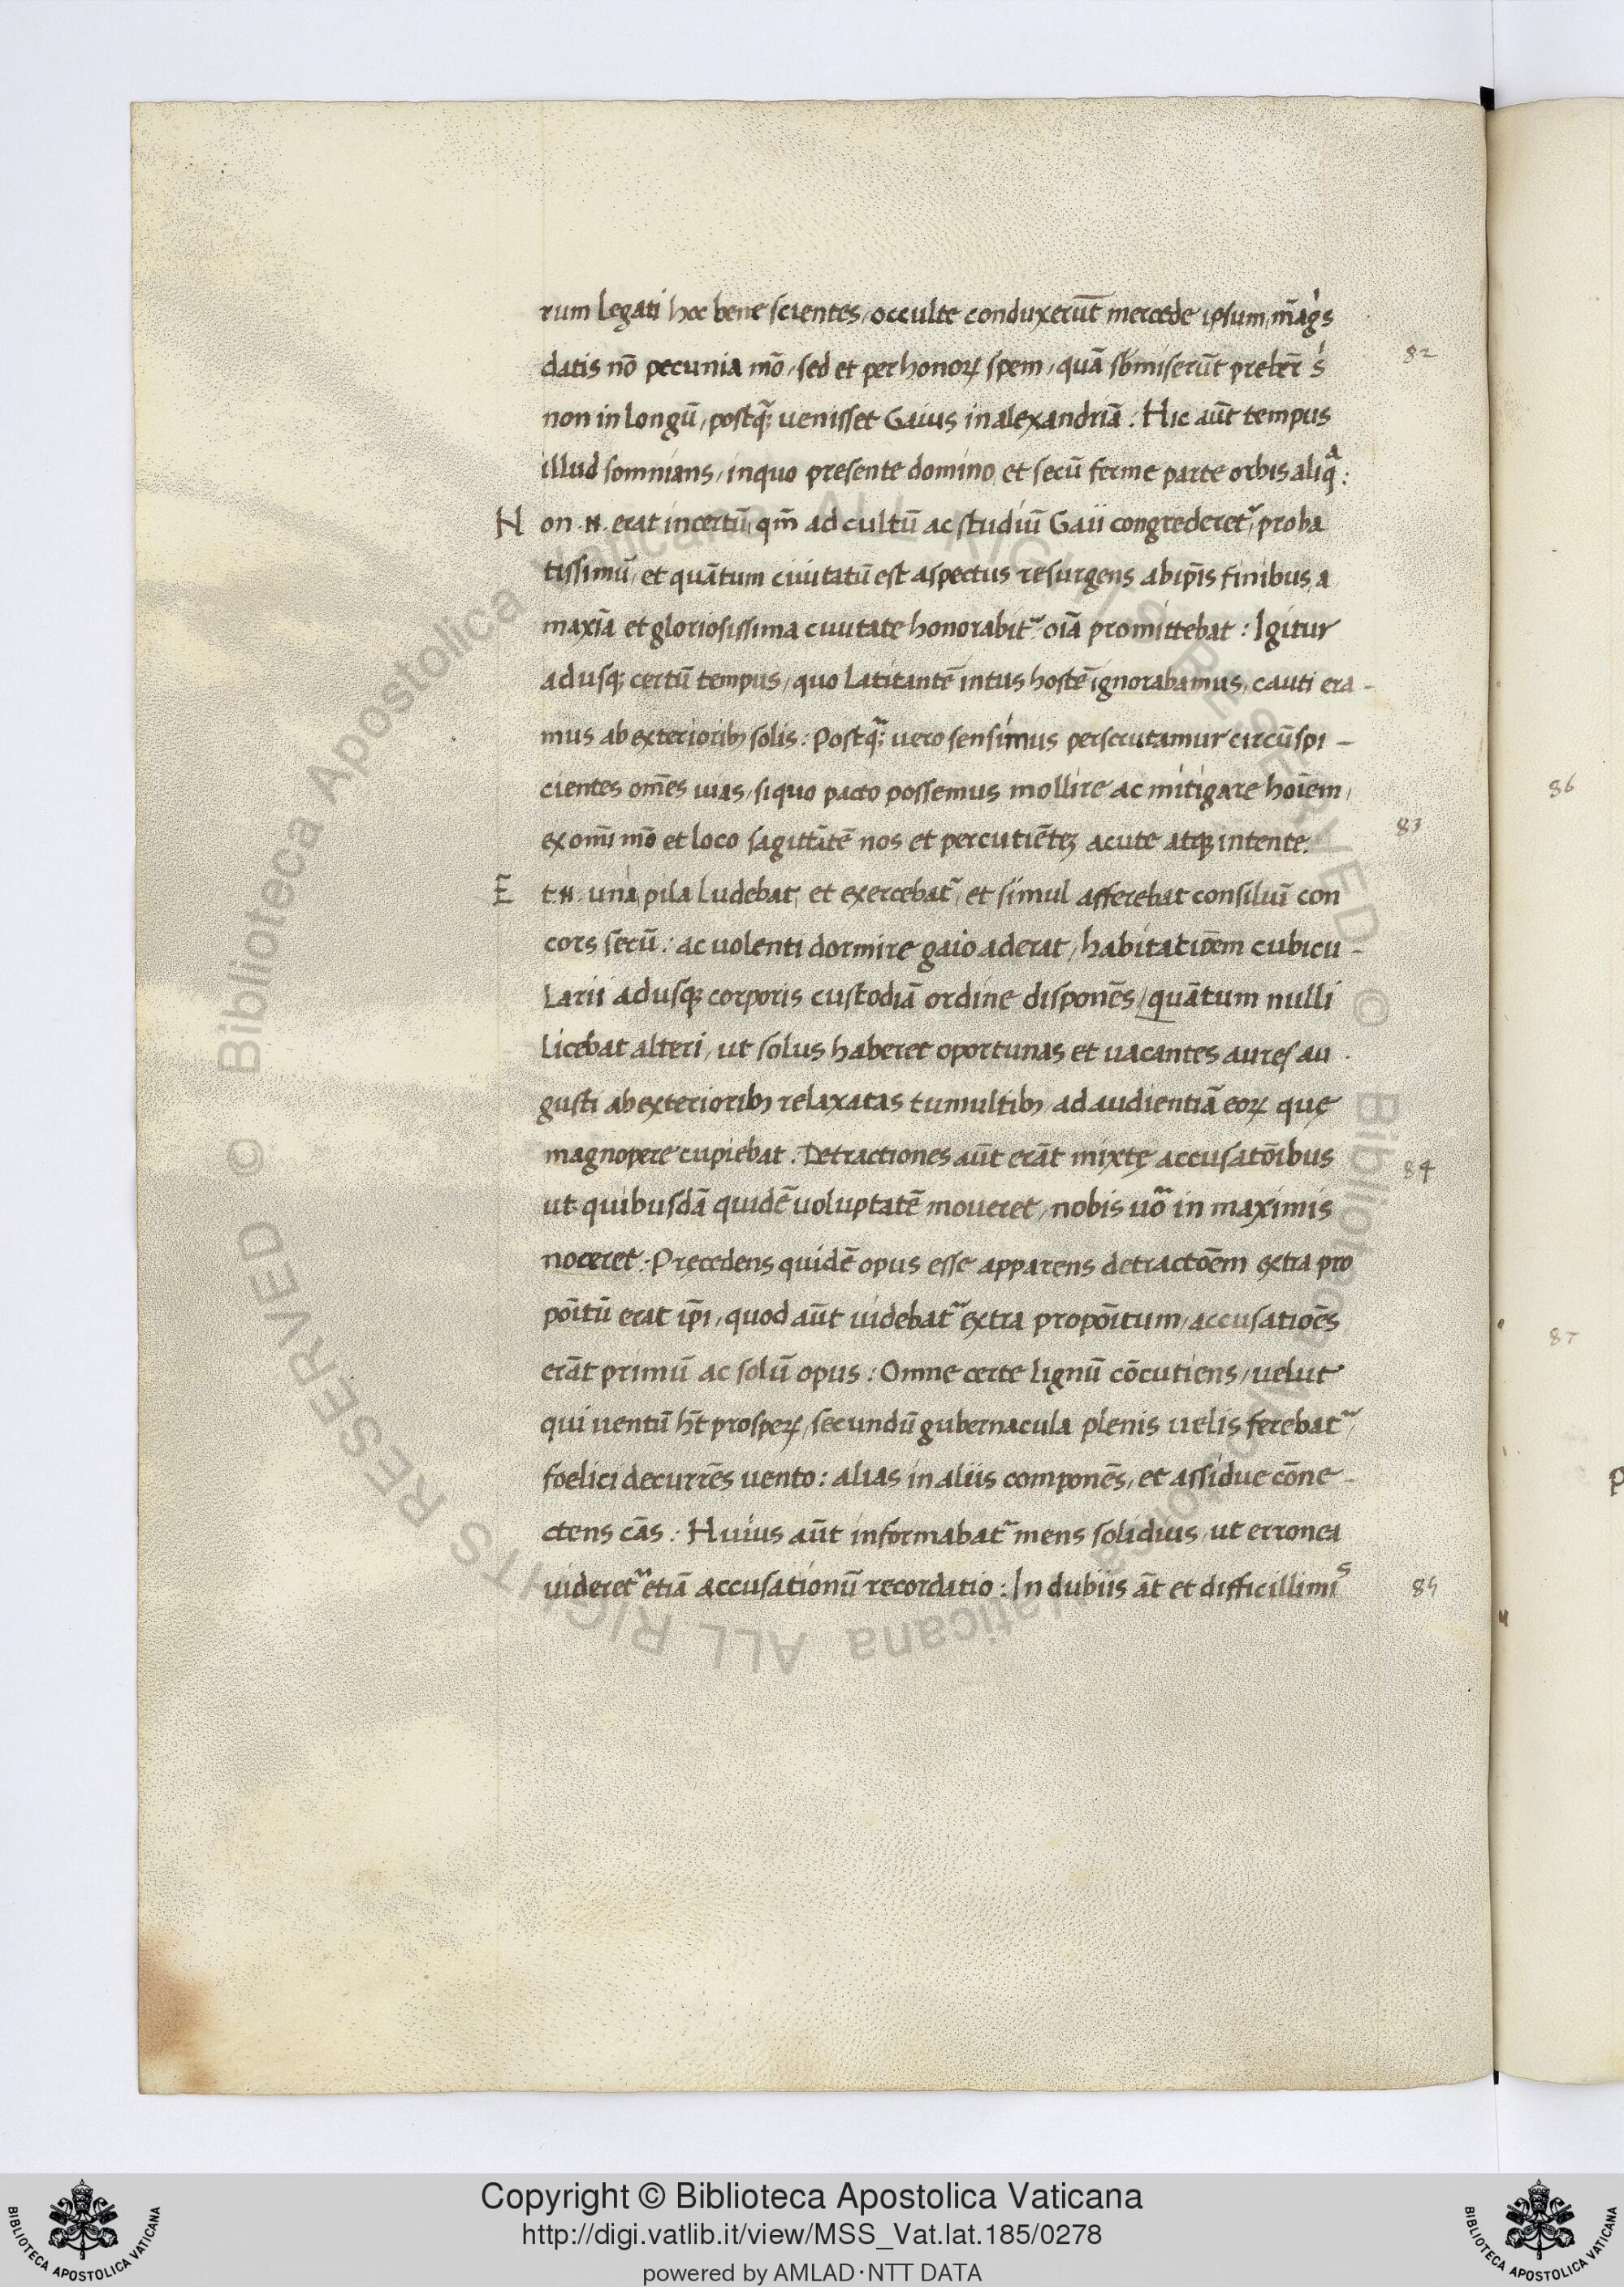 rum legati hoc bene scientes, occulte conduxerūt mercede ipsum, māgs
datis nō pecunia mō, sed et per honorꝝ spem, quā sb̄miserūt prebēr s
non in longū, postqꝫ uenisset Gaius in alexandriā: Hic aūt tempus
illud somnians, in quo presente domino et secū ferme parte orbis aliq̄:
Non .n. erat incertū, qm̄ ad cultū ac studiū Gaii congrederet, proba
tissimū, et quātum ciuitatū est aspectus resurgens ab ip̄is finibus, a
maxīa et gloriosissima ciuitate honorabit oīa promittebat: Igitur
adusqꝫ certū tempus, quo latitantē intus hostē ignorabamus, cauti era-
mus ab exterioribꝫ solis: Postqꝫ uero sensimus perscrutamur circūspi-
cientes om̄es uias, siquo pacto possemus mollire ac mitigare hoīem,
82
ex om̄i mō et loco sagittātē nos et percutiētēꝫ acute atqꝫ intente.
83
Et .n. una pila ludebat, et exercebat, et simul afferebat consiluī con
cors secū: ac uolenti dormire gaio aderat, habitatiōem cubicu-
larii adusqꝫ corporis custodiā ordine disponēs, quātum nulli
licebat alteri, ut solus haberet oportunas et uacantes aures au-
gusti ab exterioribꝫ relaxatas tumultibꝫ ad audientiā eoꝝ quę
magnopere cupiebat. Detractiones aūt erāt mixtę accusatōibus
84
ut quibusdā quidē uoluptatē moueret, nobis uo᷒ in maximis
noceret: Pręcedens quidē opus esse apparens detractōem extra pro
poītū erat ip̄i, quod aūt uidebat extra propōitum, accusatioēs
erāt primū ac solū opus: Omne certe lignū cōcutiens, uelut
qui uentū h̄t prosperꝝ, secundū gubernacula plenis uelis ferebat,
foelici decurrēs uento: alias in aliis componēs, et assidue cōne-
ctens cās: Huius aūt informabat mens solidius, ut erronea
uideret etiā accusationū recordatio: In dubiis āt et difficillimis
85
86
87
Copyright © Biblioteca Apostolica Vaticana
http://digi.vatlib.it/view/MSS_Vat.lat.185/0278
powered by AMLAD·NTT DATA